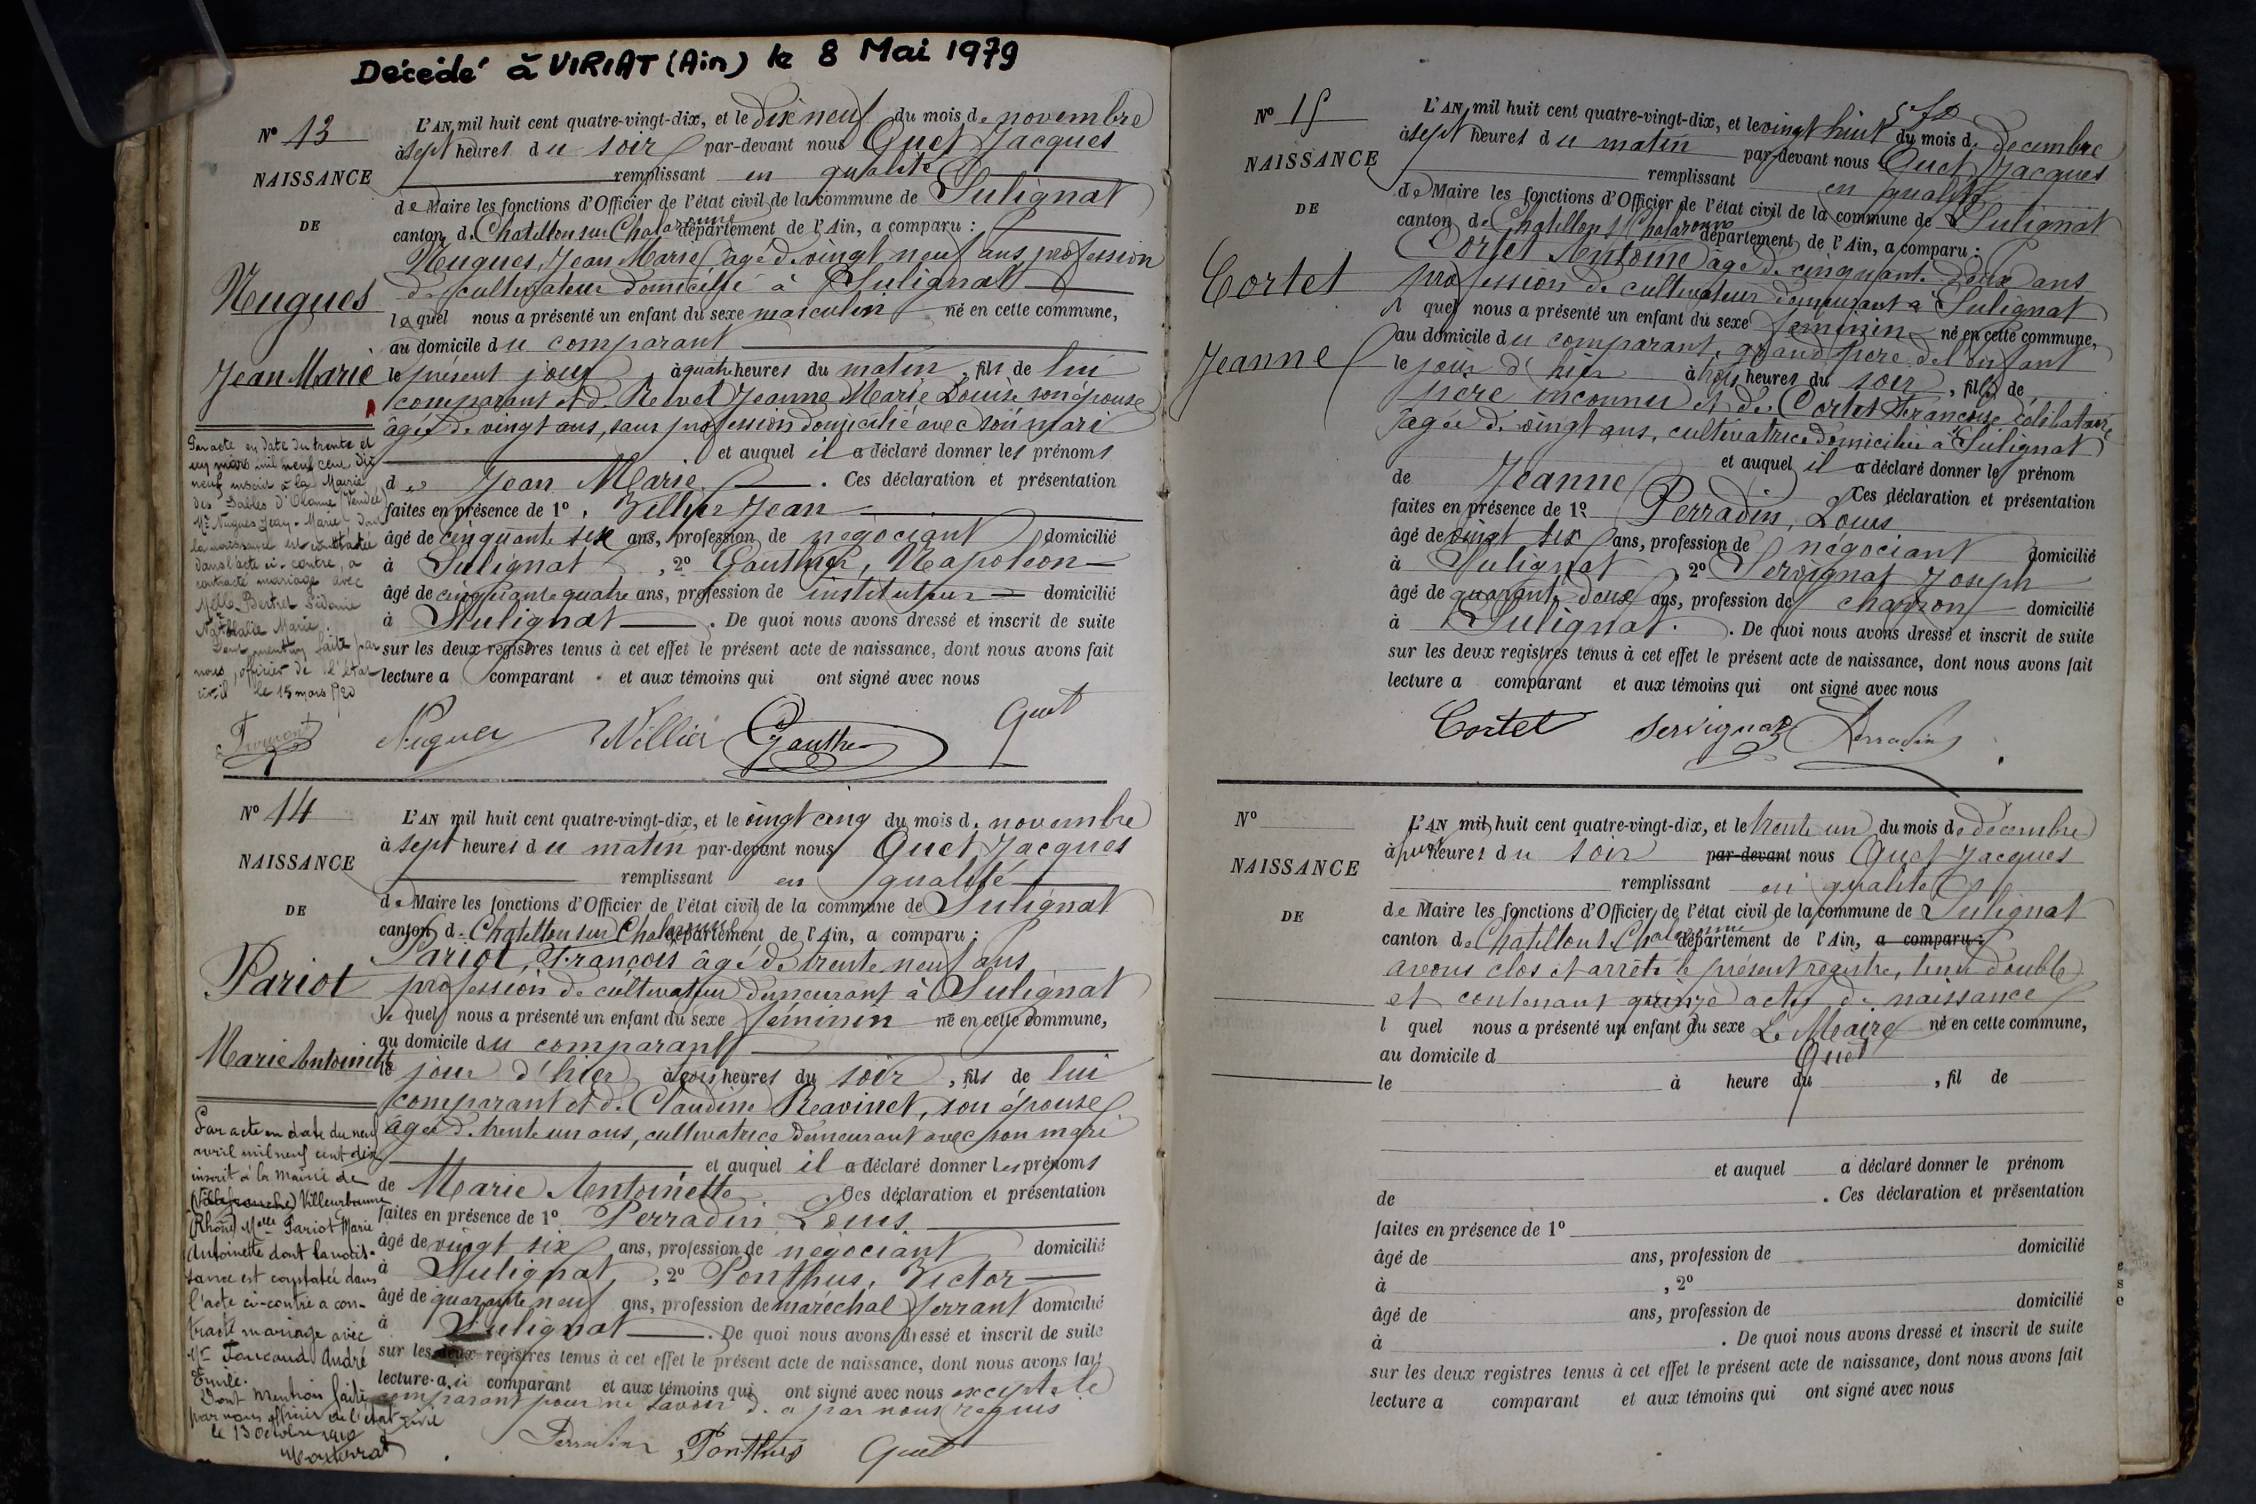 Décédé à VIRIAT (Ain) le 8 Mai 1979
N° 13
NAISSANCE
DE
Nugues
Jean Marie
Par acte en date du trente et
un mars mil neuf cent dix
neuf inscrit à la Mairie
des Sables d'Olonne (Vendée)
Mr Nugues Jean-Marie dont
la naissance est constatée
dans l'acte ci-contre, a
contracté mariage avec
Melle Bertret Sidonie
Nathalie Marie.
Dont mention faite par
nous, officier de l'état
civil le 15 mars 1920
L'AN mil huit cent quatre-vingt-dix, et le dix neuf du mois de novembre
à sept heures du soir par-devant nous Quet Jacques
remplissant en qualité
de Maire les fonctions d'Officier de l'état civil de la commune de Sulignat
canton de Chatillon sur Chalaronne département de l'Ain, a comparu :
Nugues, Jean Marie âgé de vingt neuf ans, profession
de cultivateur domicilié à Sulignat
lequel nous a présenté un enfant du sexe masculin né en cette commune,
au domicile du comparant
le présent jour à quatre heures du matin, fils de lui
comparant et de Revel Jeanne Marie Louise son épouse
âgée de vingt ans, sans profession domicilié avec son mari
et auquel il a déclaré donner les prénoms
de Jean Marie. Ces déclaration et présentation
faites en présence de 1°. Villier Jean
âgé de cinquante six ans, profession de négociant domicilié
à Sulignat, 2° Gauthier, Napoléon
âgé de cinquante quatre ans, profession de instituteur domicilié
à Sulignat. De quoi nous avons dressé et inscrit de suite
sur les deux registres tenus à cet effet le présent acte de naissance, dont nous avons fait
lecture a comparant et aux témoins qui ont signé avec nous
Nugues Villier Gauthier Quet
N° 14
NAISSANCE
DE
Pariot
Marie Antoinette
Par acte en date du neuf
avril mil neuf cent dix
inscrit à la mairie de
(Villefranche) Villeurbanne
(Rhône) Melle Pariot Marie
Antoinette dont la nais-
sance est constatée dans
l'acte ci-contre a con-
tracté mariage avec
Mr Faucaud André
Emile.
Dont mention faite
par nous officier de l'état civil
le 13 octobre 1910
L'AN mil huit cent quatre-vingt-dix, et le vingt cinq du mois de novembre
à sept heures du matin par-devant nous Quet Jacques
remplissant en qualité
de Maire les fonctions d'Officier de l'état civil de la commune de Sulignat
canton de Chatillon sur Chalaronne département de l'Ain, a comparu :
Pariot, François âgé de trente neuf ans
profession de cultivateur demeurant à Sulignat
le quel nous a présenté un enfant du sexe féminin né en cette commune,
au domicile du comparant
le jour d'hier à trois heures du soir, fils de lui
comparant et de Claudine Ravinet, son épouse
âgée de trente un ans, cultivatrice demeurant avec son mari
et auquel il a déclaré donner les prénoms
de Marie Antoinette. Ces déclaration et présentation
faites en présence de 1° Perradin Louis
âgé de vingt six ans, profession de négociant domicilié
à Sulignat, 2° Ponthus, Victor
âgé de quarante neuf ans, profession de maréchal ferrant domicilié
à Sulignat. De quoi nous avons dressé et inscrit de suite
sur les deux registres tenus à cet effet le présent acte de naissance, dont nous avons fait
lecture au comparant et aux témoins qui ont signé avec nous excepté le
comparant pour ne savoir de ce par nous requis
Perradin Ponthus Quet
N° 15
NAISSANCE
DE
Cortet
Jeanne
L'AN mil huit cent quatre-vingt-dix, et le vingt huit du mois de decembre
à sept heures du matin par-devant nous Quet Jacques
remplissant en qualité
de Maire les fonctions d'Officier de l'état civil de la commune de Sulignat
canton de Chatillon s/ Chalaronne département de l'Ain, a comparu :
Cortet Antoine âgé de cinquante deux ans
profession de cultivateur demeurant à Sulignat
l quel nous a présenté un enfant du sexe féminin né en cette commune,
au domicile du comparant, grand père de l'enfant
le jour d'hier à trois heures du soir, fille de
père inconnu et de Cortet Francoise célibataire
âgée de vingt ans, cultivatrice domiciliée à Sulignat
et auquel il a déclaré donner le prénom
de Jeanne Ces déclaration et présentation
faites en présence de 1° Perradin, Louis
âgé de vingt six ans, profession de négociant domicilié
à Sulignat, 2° Servignat Joseph
âgé de quarante deux ans, profession de charron domicilié
à Sulignat. De quoi nous avons dressé et inscrit de suite
sur les deux registres tenus à cet effet le présent acte de naissance, dont nous avons fait
lecture a comparant et aux témoins qui ont signé avec nous
Cortet Servignat Perradin
N°
NAISSANCE
DE
L'AN mil huit cent quatre-vingt-dix, et le trente un du mois de décembre
à heures du soir par-devant nous Quet Jacques
remplissant en qualité
de Maire les fonctions d'Officier de l'état civil de la commune de Sulignat
canton de Chatillon s/ Chalaronne département de l'Ain, a comparu :
avons clos et arrêté le présent registre, tenu double
et contenant quinze actes de naissance
l quel nous a présenté un enfant du sexe Le Maire né en cette commune,
au domicile d Quet
le à heure du , fil de
et auquel a déclaré donner le prénom
de . Ces déclaration et présentation
faites en présence de 1°
âgé de ans, profession de domicilié
à , 2°
âgé de ans, profession de domicilié
à . De quoi nous avons dressé et inscrit de suite
sur les deux registres tenus à cet effet le présent acte de naissance, dont nous avons fait
lecture a comparant et aux témoins qui ont signé avec nous